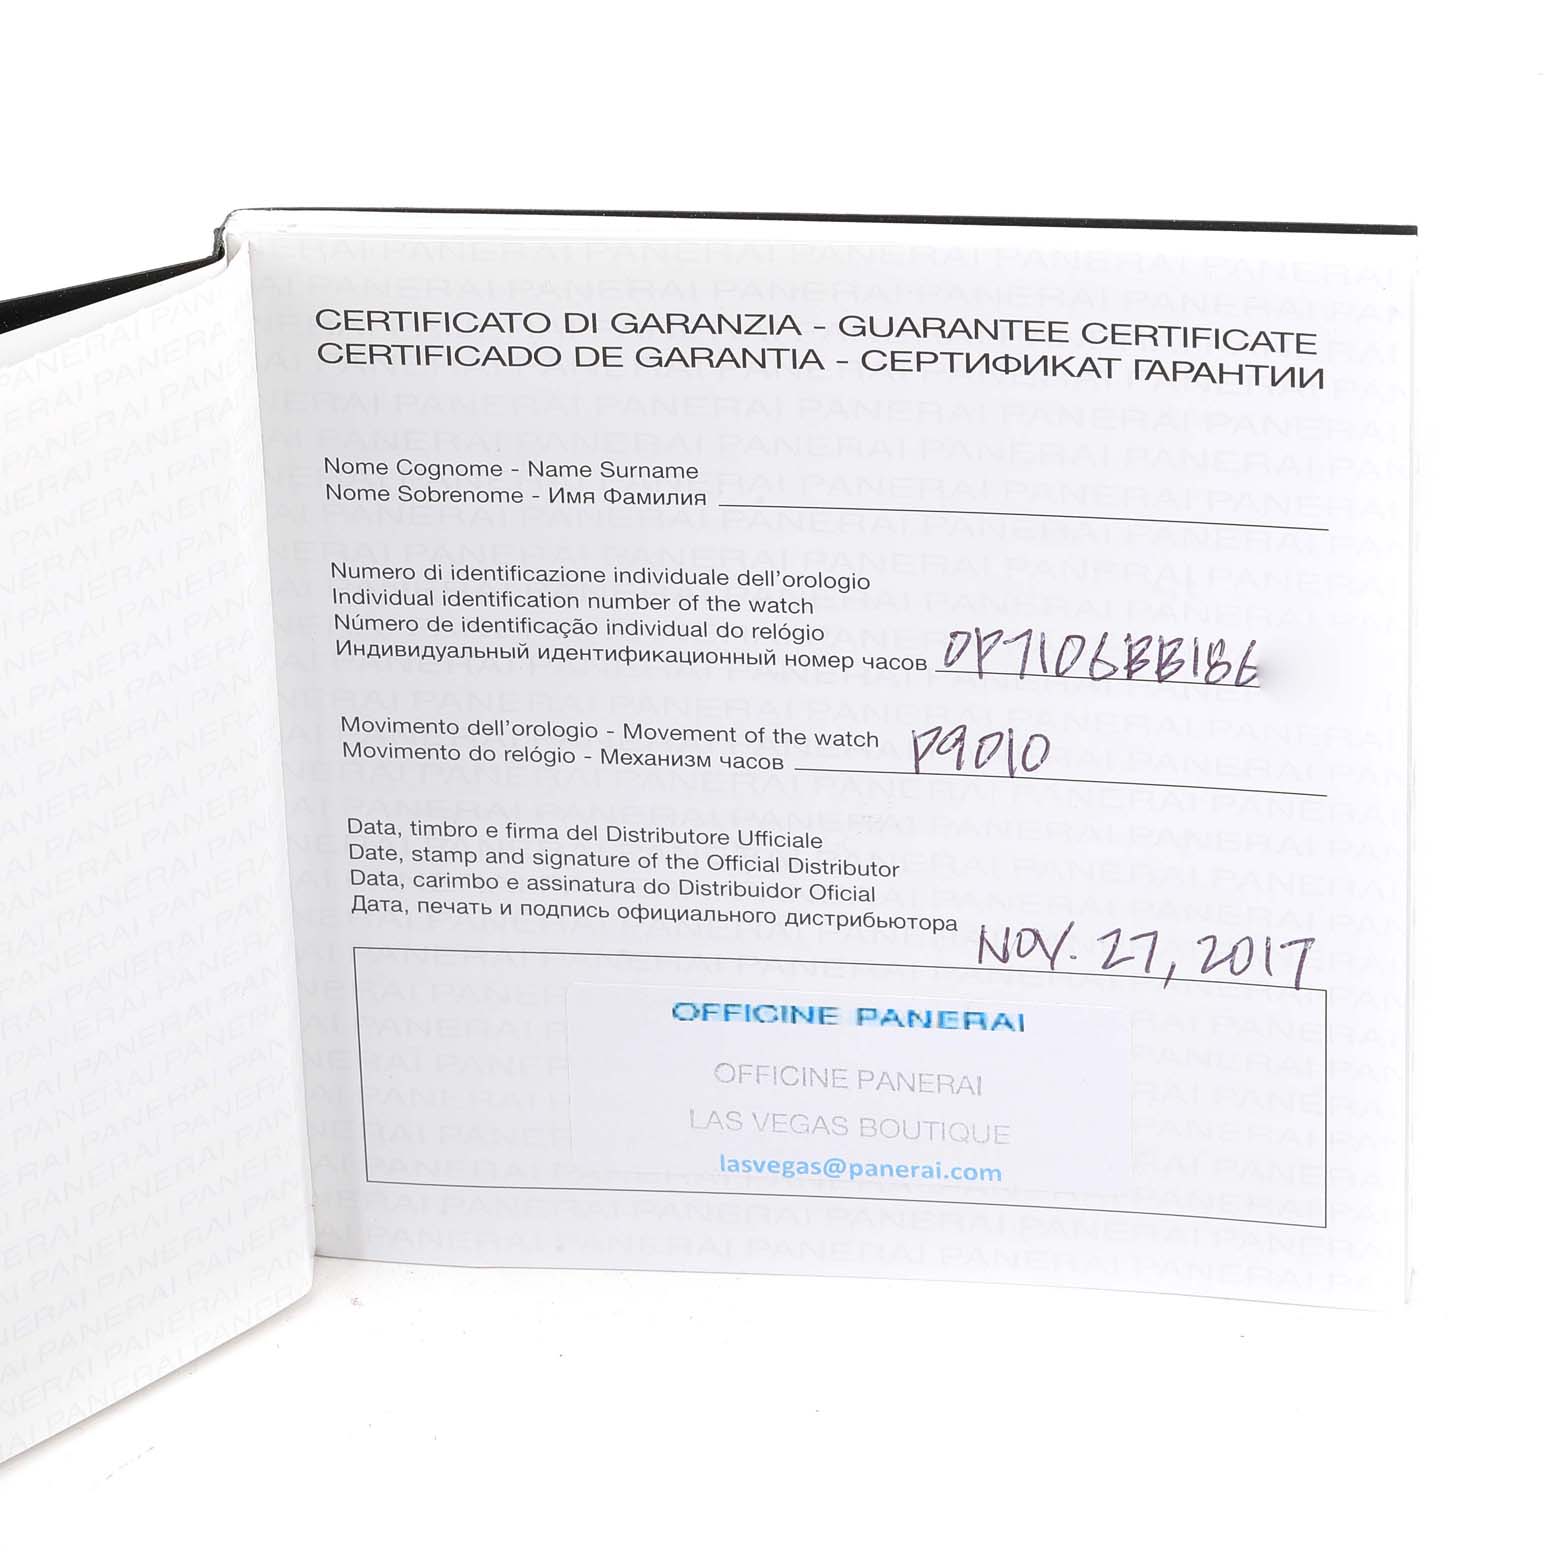 CERTIFICATO DI GARANZIA - GUARANTEE CERTIFICATE
CERTIFICADO DE GARANTIA - СЕРТИФИКАТ ГАРАНТИИ
Nome Cognome - Name Surname
Nome Sobrenome - Имя Фамилия
Numero di identificazione individuale dell'orologio
Individual identification number of the watch
Número de identificação individual do relógio
Индивидуальный идентификационный номер часов OP7106BB186
Movimento dell'orologio - Movement of the watch P9010
Movimento do relógio - Механизм часов
Data, timbro e firma del Distributore Ufficiale
Date, stamp and signature of the Official Distributor
Data, carimbo e assinatura do Distribuidor Oficial
Дата, печать и подпись официального дистрибьютора
NOV. 27, 2017
OFFICINE PANERAI
OFFICINE PANERAI
LAS VEGAS BOUTIQUE
lasvegas@panerai.com